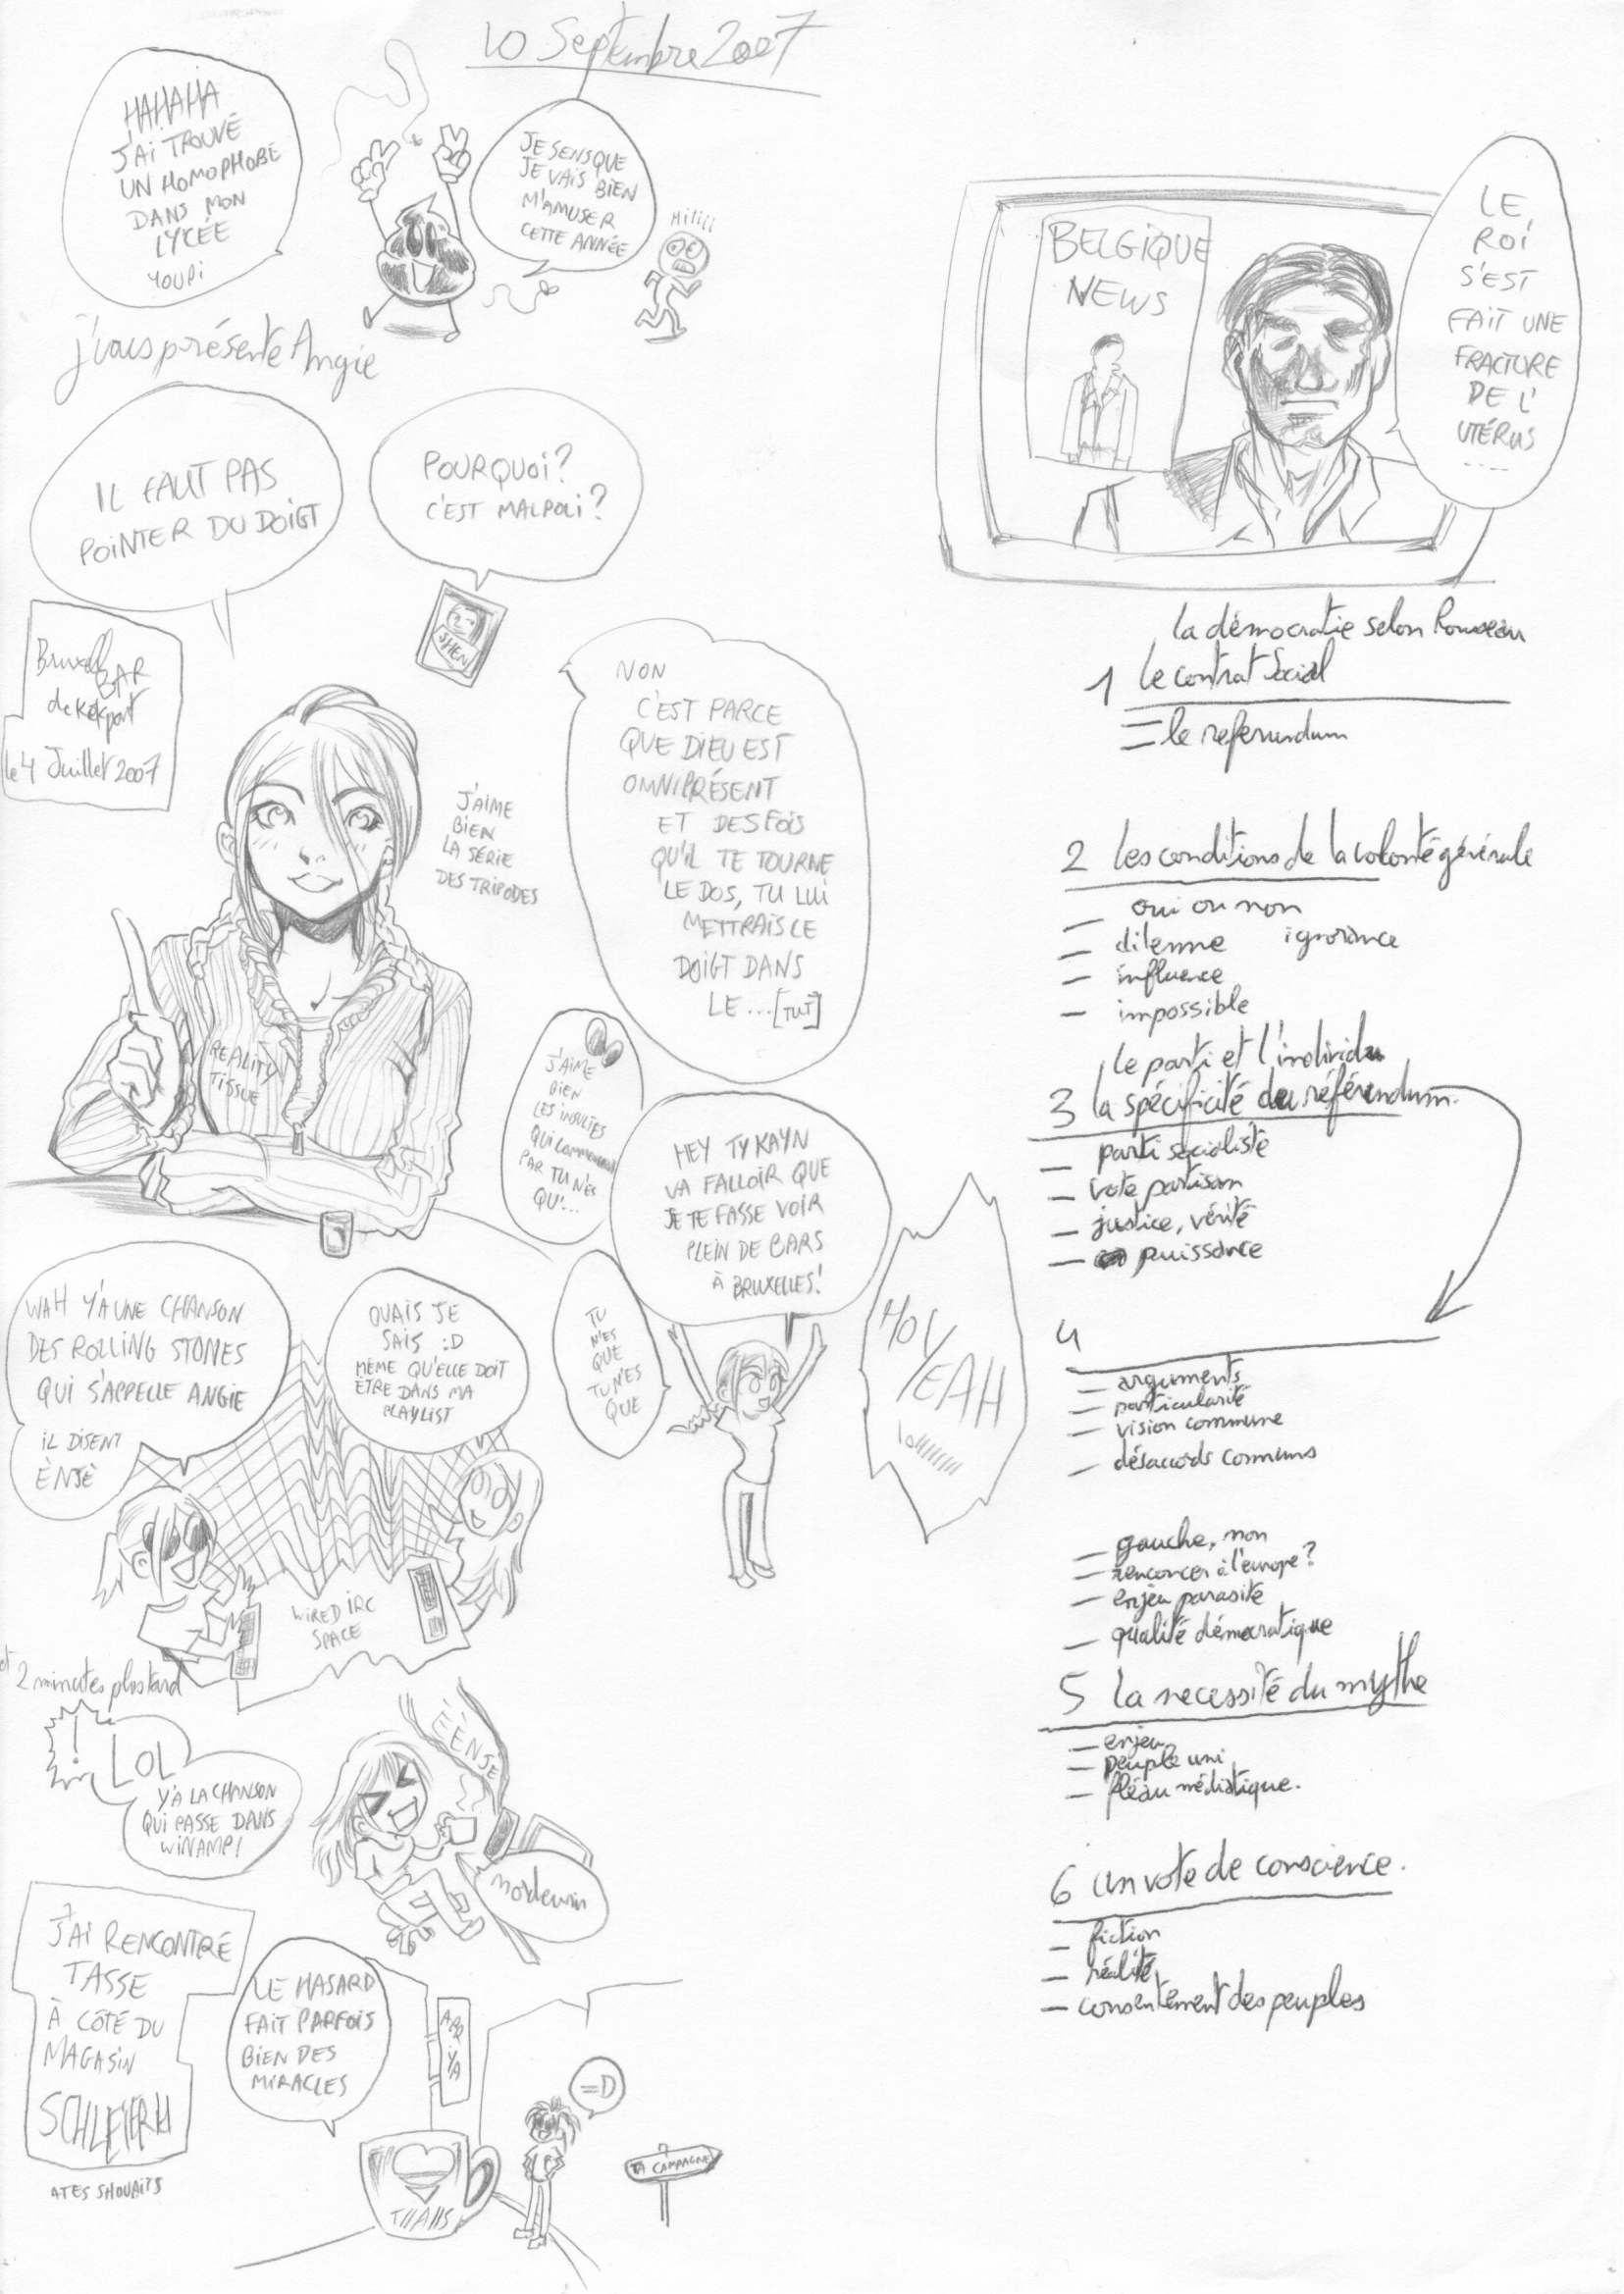 10 Septembre 2007
HAHAHA
J'AI TROUVÉ
UN HOMOPHOBE
DANS MON
LYCÉE
YOUPI
JE SENS QUE
JE VAIS BIEN
M'AMUSER
CETTE ANNÉE
HIIIII
j'vous présente Angie
IL FAUT PAS
POINTER DU DOIGT
POURQUOI?
C'EST MALPOLI?
SHEN
Bruxell
BAR
de kekpart
le 4 Juillet 2007
J'AIME
BIEN
LA SÉRIE
DES TRIPODES
NON
C'EST PARCE
QUE DIEU EST
OMNIPRÉSENT
ET DES FOIS
QU'IL TE TOURNE
LE DOS, TU LUI
METTRAIS CE
DOIGT DANS
LE ... [TUT]
REALITY
TISSUE
J'AIME
BIEN
LES INSULTES
QUI COMMENCENT
PAR TU N'ES
QU'...
HEY TYKAYN
VA FALLOIR QUE
JE TE FASSE VOIR
PLEIN DE BARS
À BRUXELLES!
TU
N'ES
QUE
TU N'ES
QUE
HOY
YEAH
WAH Y'A UNE CHANSON
DES ROLLING STONES
QUI S'APPELLE ANGIE
IL DISENT
ÈNJÈ
OUAIS JE
SAIS :D
MÊME QU'ELLE DOIT
ETRE DANS MA
PLAYLIST
WIRED IRC
SPACE
et 2 minutes plus tard
!
LOL
Y'A LA CHANSON
QUI PASSE DANS
WINAMP!
ÈÈNJE
J'AI RENCONTRÉ
TASSE
À CÔTÉ DU
MAGASIN
LE HASARD
FAIT PARFOIS
BIEN DES
MIRACLES
=D
TA CAMPAGNE
BELGIQUE
NEWS
LE
ROI
S'EST
FAIT UNE
FRACTURE
DE L'
UTÉRUS
....
la démocratie selon Rousseau
1 le contrat Social
= le referundum
2 les conditions de la volonté générale
— oui ou non
— dilemme ignorance
— influence
— impossible
le parti et l'individu
3 la spécificité du référendum.
— parti socialiste
— vote partisan
— justice, vérité
— puissance
4
— arguments
— particularité
— vision commune
— désaccords communs
— gauche, non
— renoncer à l'europe?
— enjeu parasite
— qualité démocratique
5 la necessité du mythe
— enjeu
— peuple uni
— fléau médiatique.
6 un vote de conscience.
— fiction
— réalité
— consentement des peuples